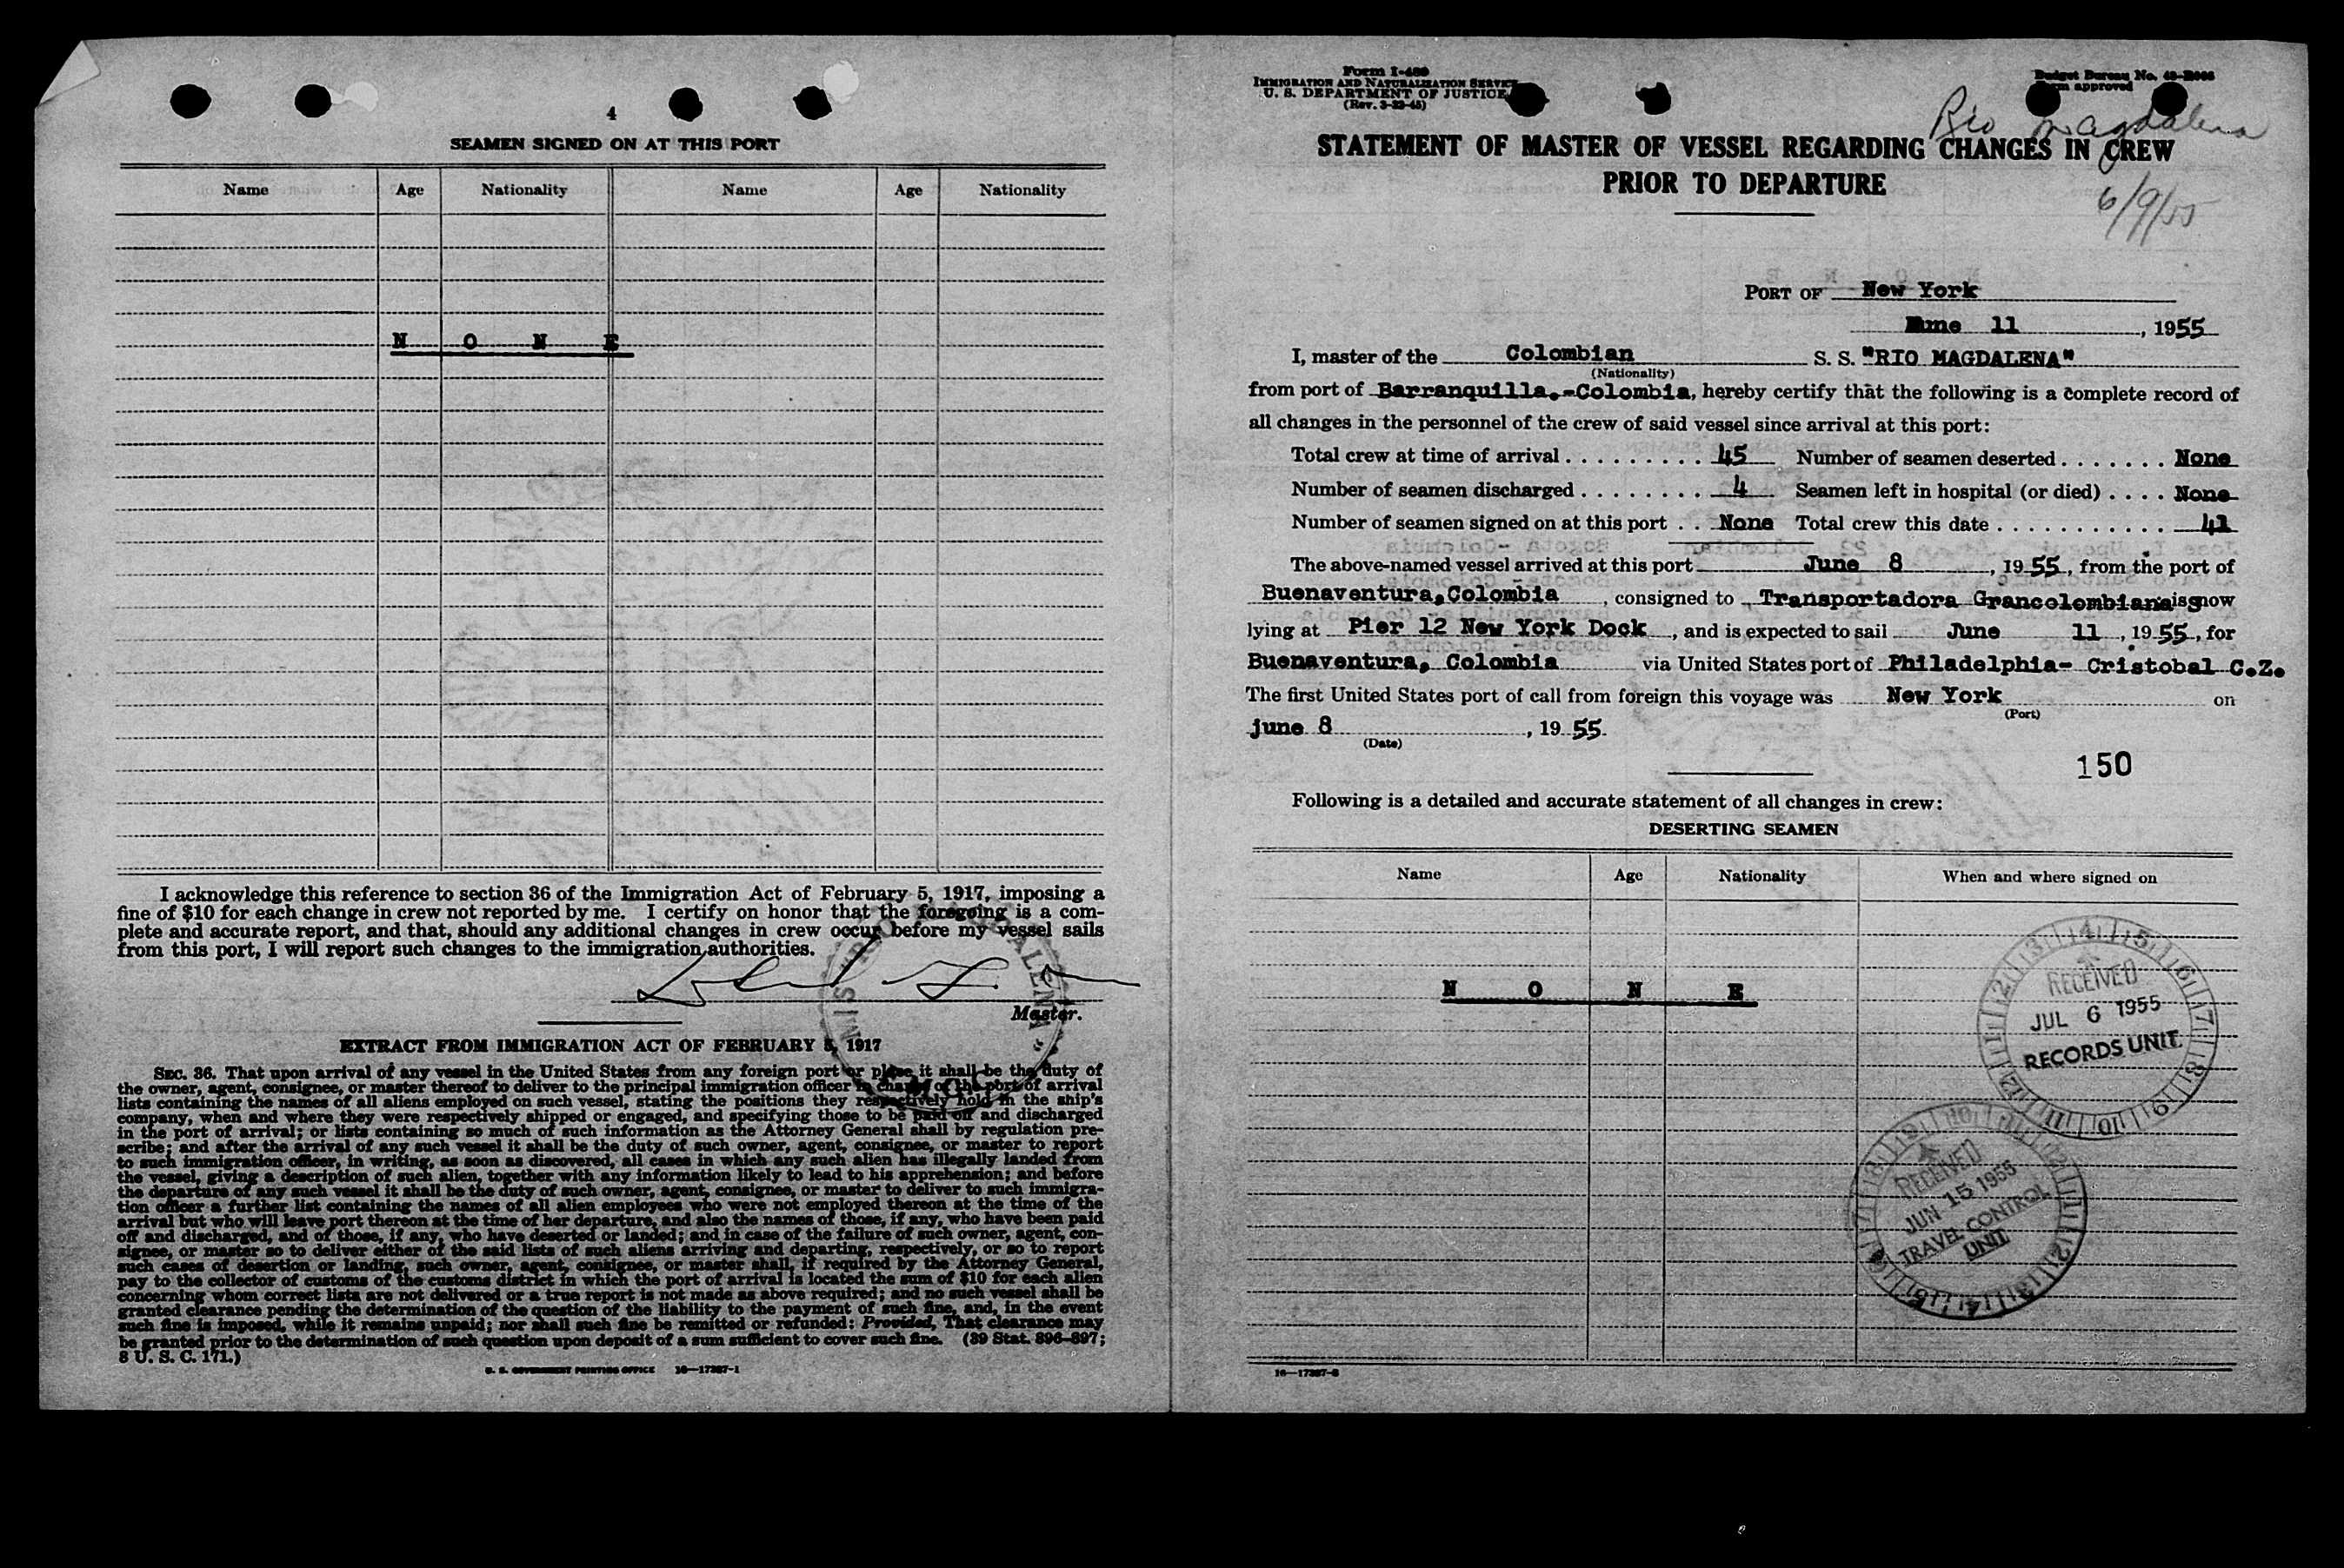 4
SEAMEN SIGNED ON AT THIS PORT
Name Age Nationality Name Age Nationality
N O N E
I acknowledge this reference to section 36 of the Immigration Act of February 5, 1917, imposing a
fine of $10 for each change in crew not reported by me. I certify on honor that the foregoing is a com-
plete and accurate report, and that, should any additional changes in crew occur before my vessel sails
from this port, I will report such changes to the immigration authorities.
Master.
EXTRACT FROM IMMIGRATION ACT OF FEBRUARY 5, 1917
SEC. 36. That upon arrival of any vessel in the United States from any foreign port or place it shall be the duty of
the owner, agent, consignee, or master thereof to deliver to the principal immigration officer in charge of the port of arrival
lists containing the names of all aliens employed on such vessel, stating the positions they respectively hold in the ship's
company, when and where they were respectively shipped or engaged, and specifying those to be paid off and discharged
in the port of arrival; or lists containing so much of such information as the Attorney General shall by regulation pre-
scribe; and after the arrival of any such vessel it shall be the duty of such owner, agent, consignee, or master to report
to such immigration officer, in writing, as soon as discovered, all cases in which any such alien has illegally landed from
the vessel, giving a description of such alien, together with any information likely to lead to his apprehension; and before
the departure of any such vessel it shall be the duty of such owner, agent, consignee, or master to deliver to such immigra-
tion officer a further list containing the names of all alien employees who were not employed thereon at the time of the
arrival but who will leave port thereon at the time of her departure, and also the names of those, if any, who have been paid
off and discharged, and of those, if any, who have deserted or landed; and in case of the failure of such owner, agent, con-
signee, or master so to deliver either of the said lists of such aliens arriving and departing, respectively, or so to report
such cases of desertion or landing, such owner, agent, consignee, or master shall, if required by the Attorney General,
pay to the collector of customs of the customs district in which the port of arrival is located the sum of $10 for each alien
concerning whom correct lists are not delivered or a true report is not made as above required; and no such vessel shall be
granted clearance pending the determination of the question of the liability to the payment of such fine, and, in the event
such fine is imposed, while it remains unpaid; nor shall such fine be remitted or refunded: Provided, That clearance may
be granted prior to the determination of such question upon deposit of a sum sufficient to cover such fine. (39 Stat. 896-897;
8 U. S. C. 171.)
U. S. GOVERNMENT PRINTING OFFICE 16—17387-1
Form I-489
IMMIGRATION AND NATURALIZATION SERVICE
U. S. DEPARTMENT OF JUSTICE
(Rev. 3-22-45)
Budget Bureau No.
approved
Rio Magdalena
STATEMENT OF MASTER OF VESSEL REGARDING CHANGES IN CREW
PRIOR TO DEPARTURE
6/9/55
PORT OF New York
June 11, 1955
I, master of the Colombian S. S. "RIO MAGDALENA"
(Nationality)
from port of Barranquilla.-Colombia, hereby certify that the following is a complete record of
all changes in the personnel of the crew of said vessel since arrival at this port:
Total crew at time of arrival . . . . . . . . . 45 Number of seamen deserted . . . . . . . None
Number of seamen discharged . . . . . . . . 4 Seamen left in hospital (or died) . . . . None
Number of seamen signed on at this port . . None Total crew this date . . . . . . . . . . . . 41
The above-named vessel arrived at this port June 8, 1955, from the port of
Buenaventura,Colombia, consigned to Transportadora Grancolombiana is now
lying at Pier 12 New York Dock, and is expected to sail June 11, 1955, for
Buenaventura, Colombia via United States port of Philadelphia- Cristobal C.Z.
The first United States port of call from foreign this voyage was New York on
(Port)
june 8, 1955.
(Date)
150
Following is a detailed and accurate statement of all changes in crew:
DESERTING SEAMEN
Name Age Nationality When and where signed on
N O N E
RECEIVED
JUL 6 1955
RECORDS UNIT
RECEIVED
JUN 15 1955
TRAVEL CONTROL
UNIT